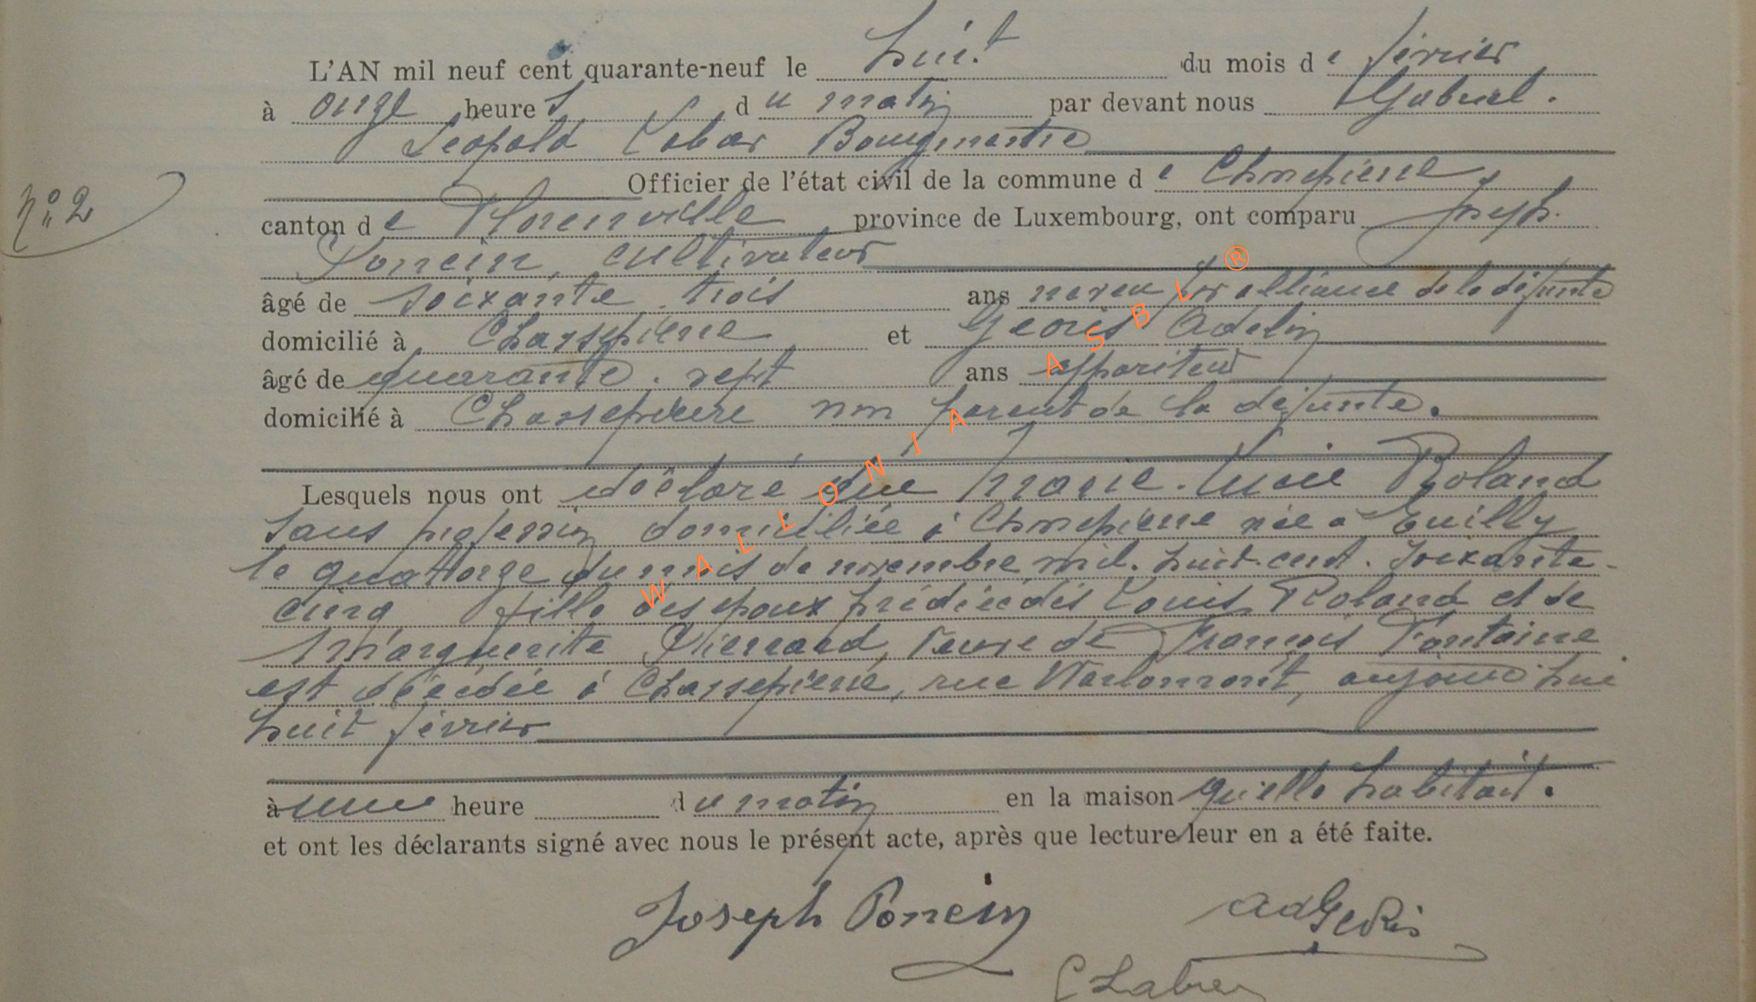 L'AN mil neuf cent quarante-neuf le huit du mois de février
à onze heures du matin par devant nous Gabriel.
Léopold Bourgmestre
Officier de l'état civil de la commune de Chassepierre,
N° 2
canton de Florenville province de Luxembourg, ont comparu Joseph
Poncin, cultivateur
âgé de soixante-trois ans neveu par alliance de la défunte
domicilié à Chassepierre et Georis Adelin
âgé de quarante-sept ans appariteur
domicilié à Chassepierre non parent de la défunte.
Lesquels nous ont déclaré que Marie-Lucie Roland
sans profession domiciliée à Chassepierre née à Euilly
le quatorze du mois de novembre mil-huit-cent-soixante-
cinq fille des époux prédécédés Louis Roland et de
Marguerite Pierrard, veuve de François Fontaine
est décédée à Chassepierre, rue Warlomont, aujourd'hui
huit février
à une heure du matin en la maison qu'elle habitait.
et ont les déclarants signé avec nous le présent acte, après que lecture leur en a été faite.
Joseph Poncin Ad Georis
WALLONIA ASBL ®